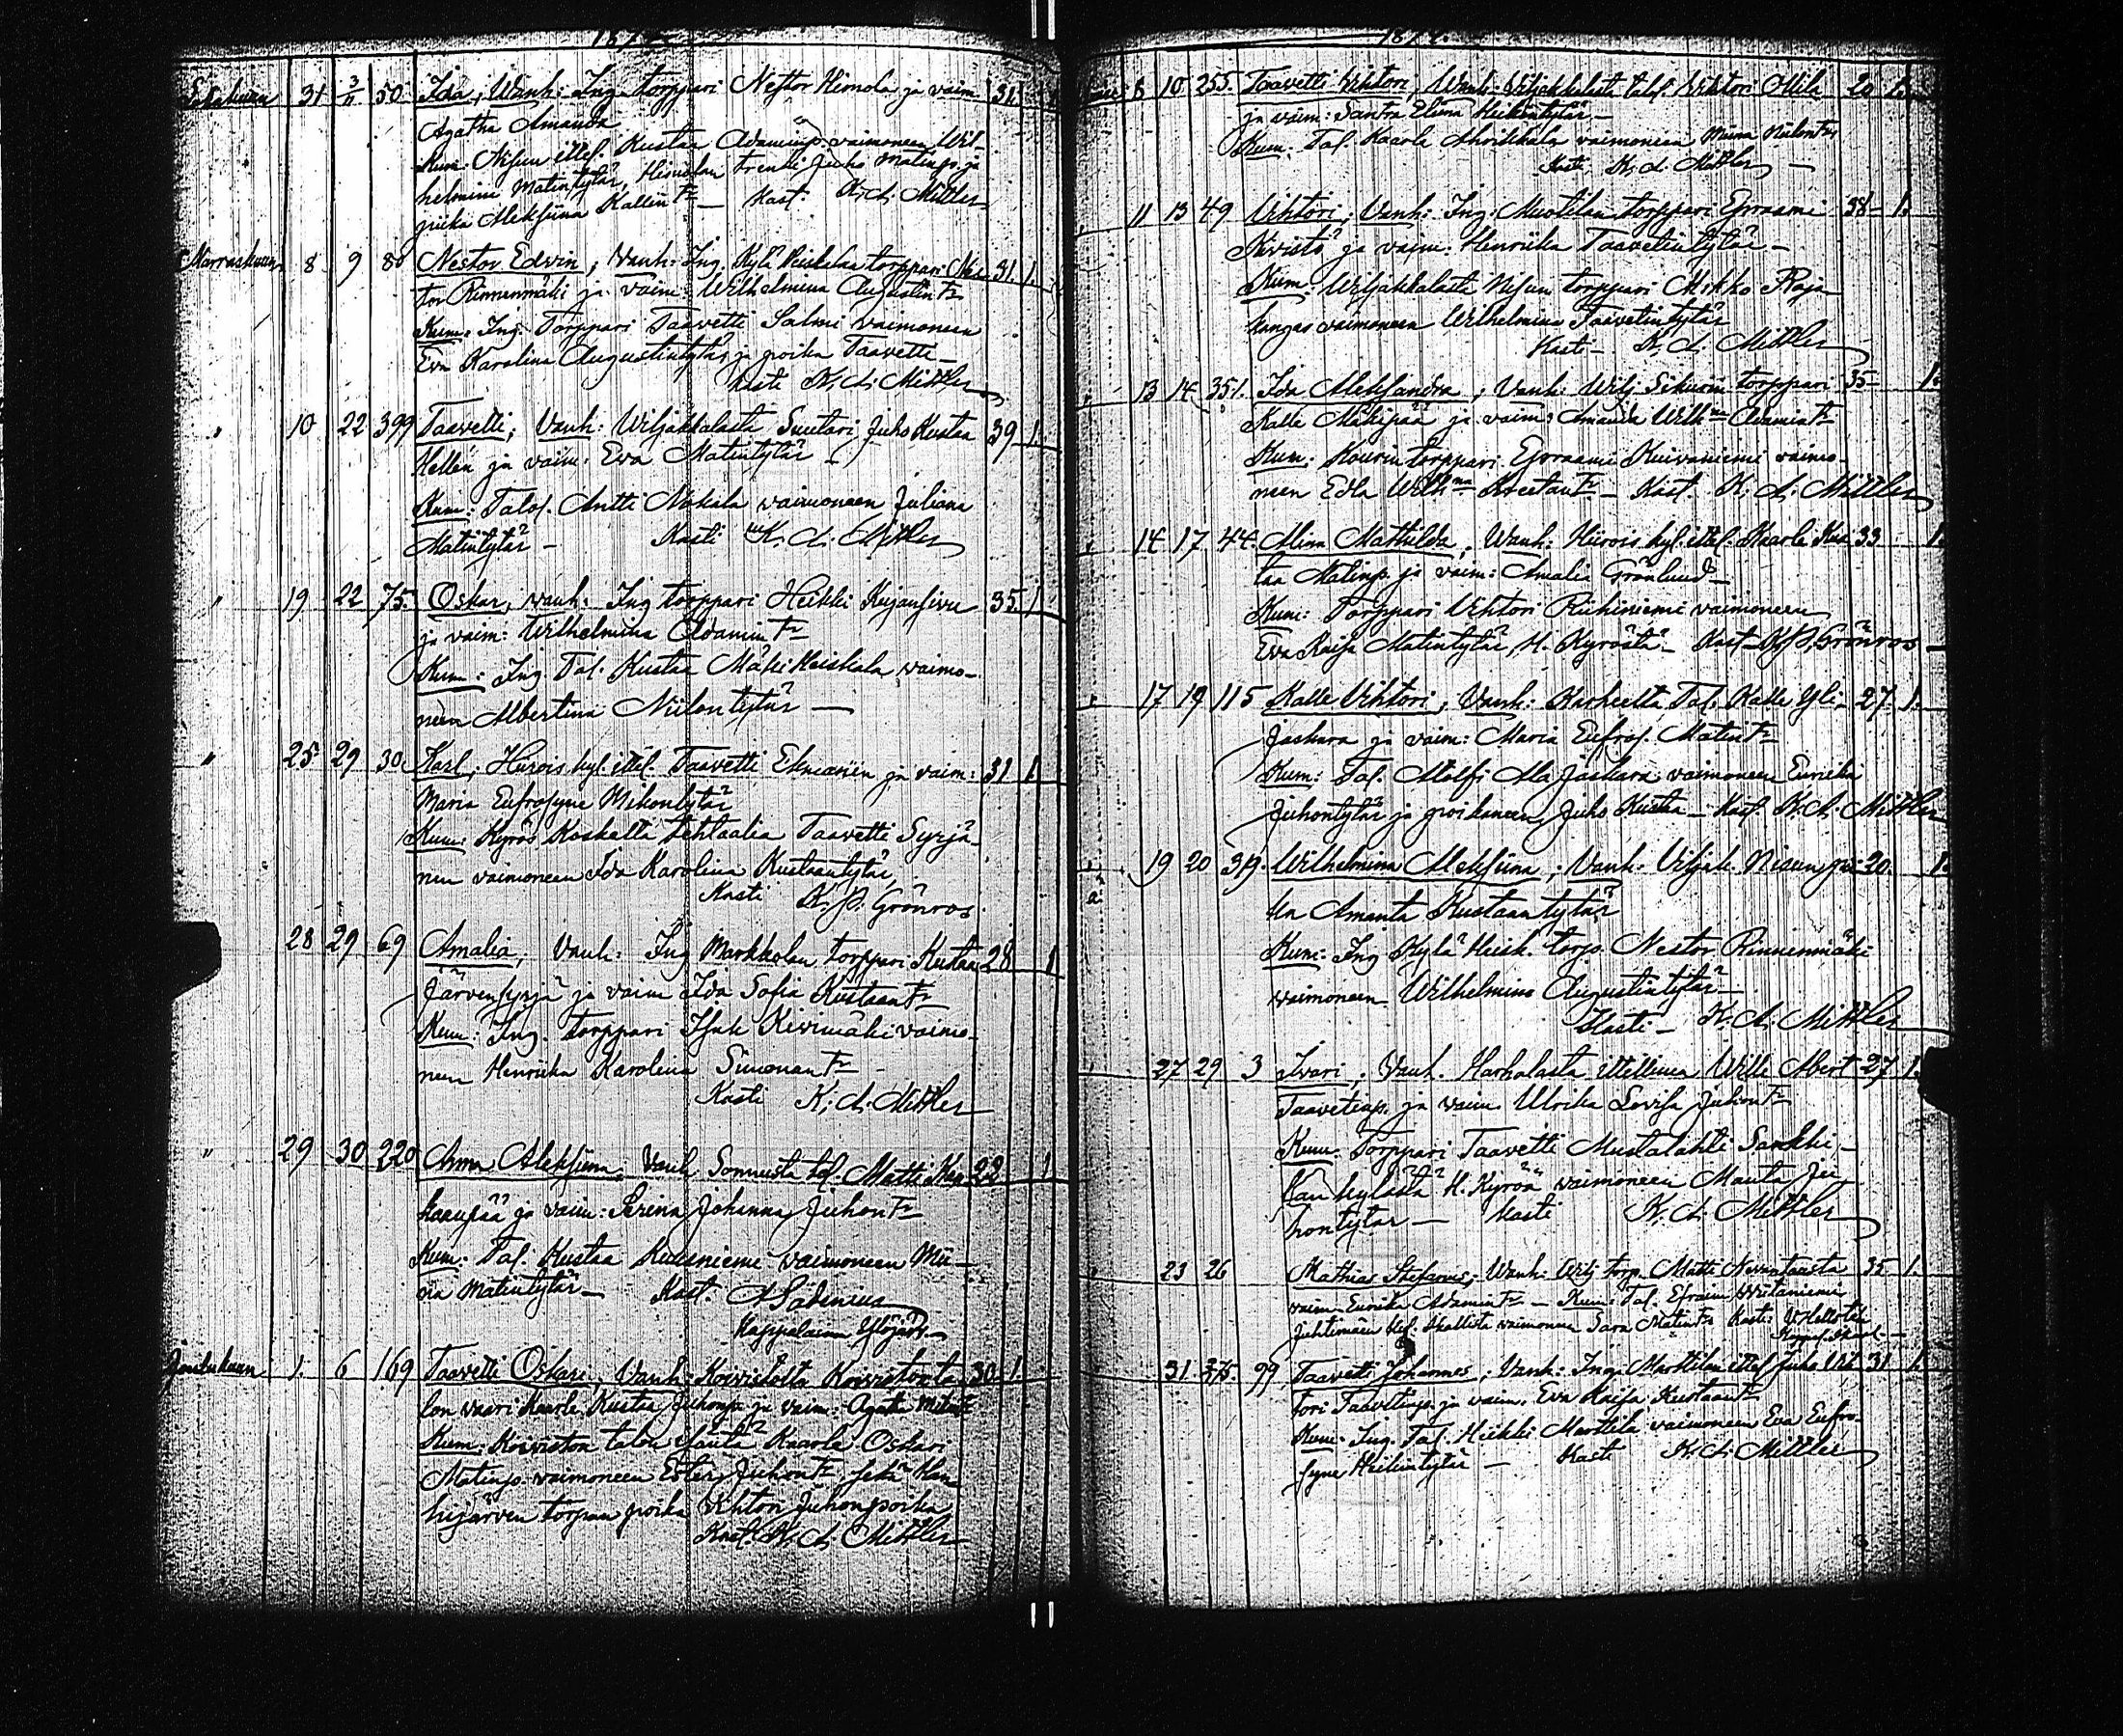 Lokakuun 31 3/11 50 Ida; Vanh: Ing. torppari Nestor Himola ja vaim. 31. 1
Agatha Amanda
Kum: ittel. Kustaa Adaminp. vaimoneen Wil-
helmina Matintytär, trenki Juho Matinp. ja
piika Aleksiina Kallen Tr — Kast. K. A. Mittler
Marraskuun 8 9 80 Nestor Edvin; Vanh: Ing. Kylä Heiskalan torppari Nes- 31. 1.
tor Rinnenmäki ja vaim: Wilhelmina Augustin Tr
Kum: Ing. Torppari Taavetti Salmi vaimoneen
Eva Karolina Augustintytär ja poika Taavetti —
Kasti K. A. Mittler
" 10 22 399 Taavetti; Vanh: Viljakkalasta Suutari Juho Kustaa 39 1.
Hellén ja vaim: Eva Matintytär —
Kum: Talol. Antti Nokala vaimoneen Juliana
Matintytär — Kasti K. A. Mittler
" 19 22 75. Oskar, vanh: Ing torppari Heikki Kujansivu 35. 1.
ja vaim: Wilhelmina Adamin Tr
Kum: Ing. Tal. Kustaa Mäki Heiskala vaimo-
neen Albertina Niilontytär —
" 25 29 30 Karl; Hirois kyl. ittel. Taavetti Ekmanén ja vaim: 31 1.
Maria Eufrosyne Mikontytär
Kum: Kyrös Koskelta tehtaalia Taavetti Syrjä-
nen vaimoneen Ida Karolina Kustaantytär
Kasti K. P. Grönros.
28 29 69 Amalia, Vanh: Ing Markkolan torppari Kustaa 28 1
Järvensyrjä ja vaim Ida Sofia Kustaan Tr
Kum: Ing. torppari Isak Kivimäki vaimo-
neen Henriika Karolina Simonan Tr —
Kasti K. A. Mittler
" 29 30 220 Anna Aleksiina; Vanh tal. Matti 28 1
ja vaim: Serina Johanna Juhon Tr
Kum: Tal. Kustaa Kuusniemi vaimoneen Mii-
na Matintytär — Kast. A Sadenius
Kappalainen Ylöjärv.
Joulukuun 1. 6 169 Taavetti Oskari, Vanh: Koivistolta Koiviston ta- 30 1.
lon vaari Kaarle Kustaa Juhonp. ja vaim: Agata Matin Tr
Kum: Koiviston talon isäntä Kaarle Oskari
Matinp. vaimoneen Ester Juhon Tr sekä Han-
hijärven torpan poika Vihtori Juhonpoika
Kast. K. A. Mittler
8 10 255. Taavetti Vihtori; Vanh: Viljakkalasta tal. Vihtori Ollila 20 1.
ja vaim: Santra Eliina Heikintytär —
Kum: Tal. Kaarle Ahrikkala vaimoneen Miina Niilon Tr
Kasti, K. A. Mittler —
11 13 49 Vihtori; Vanh: Ing. Muotilan torppari Eeraami 38 1.
Kivistö ja vaim: Henriika Taavetintytär —
Kum: Viljakkalasta torppari Mikko Raja-
kangas vaimoneen Wilhelmina Taavetintytär
Kasti — K. A. Mittler
13 14 351. Ida Aleksandra; Vanh: Wilj. torppari 35 1.
Kalle Mäkipää ja vaim: Amanda Wilh:na Adamin Tr
Kum: torppari Eeraami Kuivaniemi vaimo-
neen Edla Wilh:na Tr — Kast. K. A. Mittler
14 17 44. Miina Mathilda; Vanh: Hirois. kyl. ittel. Kaarle Kus- 33 1.
taa Matinp. ja vaim: Amalia Grönlund —
Kum: Torppari Vihtori Riihiniemi vaimoneen
Eva Kaisa Matintytär, H. Kyröstä — Kast. K. P. Grönros —
17 19 115 Kalle Vihtori; Vanh: Karheelta Tal. Kalle Yli- 27. 1.
Jaskara ja vaim: Maria Eufros. Matin Tr
Kum: Tal. Adolfi Ala Jaskara vaimoneen Eurika
Juhontytär ja poikaneen Juho Kustaa — Kast. K. A. Mittler
19 20 319. Wilhelmina Aleksiina; Vanh: Viljak. 20. 1.
Amanta Kustaantytär
Kum: Ing Kylä Heisk. torp. Nestor Rinnenmäki
vaimoneen Wilhelmina Augustintytär —
Kasti — K. A. Mittler
27 29 3 Ivari; Vanh. Harhalasta ittellinen Wille Abert 27 1.
Taavetinp. ja vaim. Ulrika Lovisa Juhon Tr
Kum: Torppari Taavetti Mustalahti Sarkki-
lan kylästä H. Kyröä vaimoneen Manta Ju-
hontytär — Kasti K. A. Mittler
23 26 Mathias Stefanus; Vanh: Wilj torp. Matti 35 1.
vaim. Eurika Adamin Tr — Kum: Tal. Efraim
vaimoneen Sara Matin Tr Kasti
31 99 Taavetti Johannes; Vanh: Ing. Marttilan ittel Juho Vih- 31 1.
tori Taavetinp. ja vaim. Eva Kaisa Kustaan Tr
Kum: Ing. Tal. Heikki Marttila vaimoneen Eva Eufro-
syne Heikintytär — Kasti K. A. Mittler